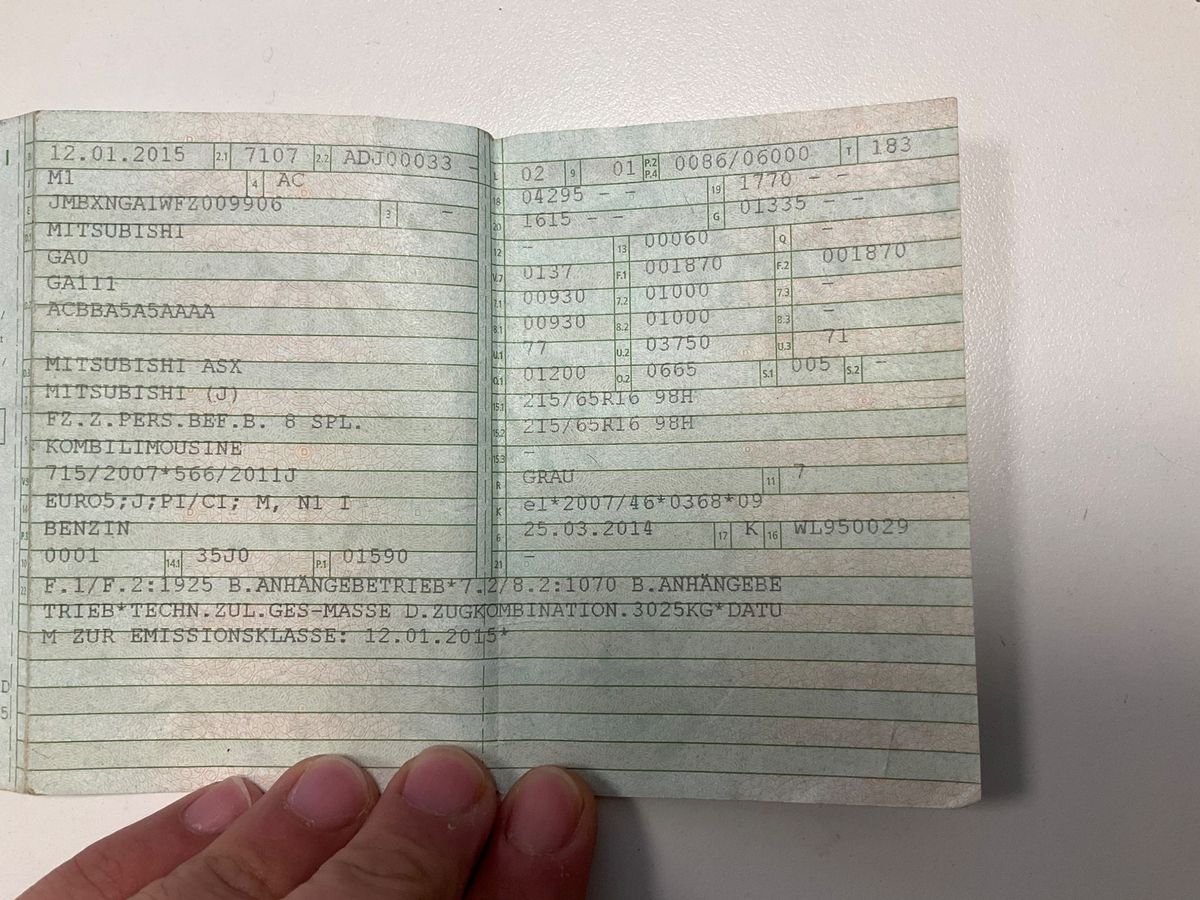 B 12.01.2015 2.1 7107 2.2 ADJ00033 -
J M1 4 AC
E JMBXNGA1WFZ009906 3 -
D.1 MITSUBISHI
GA0
GA111
ACBBA5A5AAAA
D.3 MITSUBISHI ASX
MITSUBISHI (J)
FZ.Z.PERS.BEF.B. 8 SPL.
KOMBILIMOUSINE
V.9 715/2007*566/2011J
EURO5;J;PI/CI; M, N1 I
P.3 BENZIN
10 0001 14.1 35J0 P.1 01590
L 02 9 01 P.2 P.4 0086/06000 T 183
18 04295 - - 19 1770 - -
20 1615 - - G 01335 - -
12 - 13 00060 Q -
V.7 0137 F.1 001870 F.2 001870
7.1 00930 7.2 01000 7.3 -
8.1 00930 8.2 01000 8.3 -
U.1 77 U.2 03750 U.3 71
O.1 01200 O.2 0665 S.1 005 S.2 -
15.1 215/65R16 98H
15.2 215/65R16 98H
15.3 -
R GRAU 11 7
K e1*2007/46*0368*09
6 25.03.2014 17 K 16 WL950029
21 -
22 F.1/F.2:1925 B.ANHÄNGEBETRIEB*7.2/8.2:1070 B.ANHÄNGEBE
TRIEB*TECHN.ZUL.GES-MASSE D.ZUGKOMBINATION.3025KG*DATU
M ZUR EMISSIONSKLASSE: 12.01.2015*